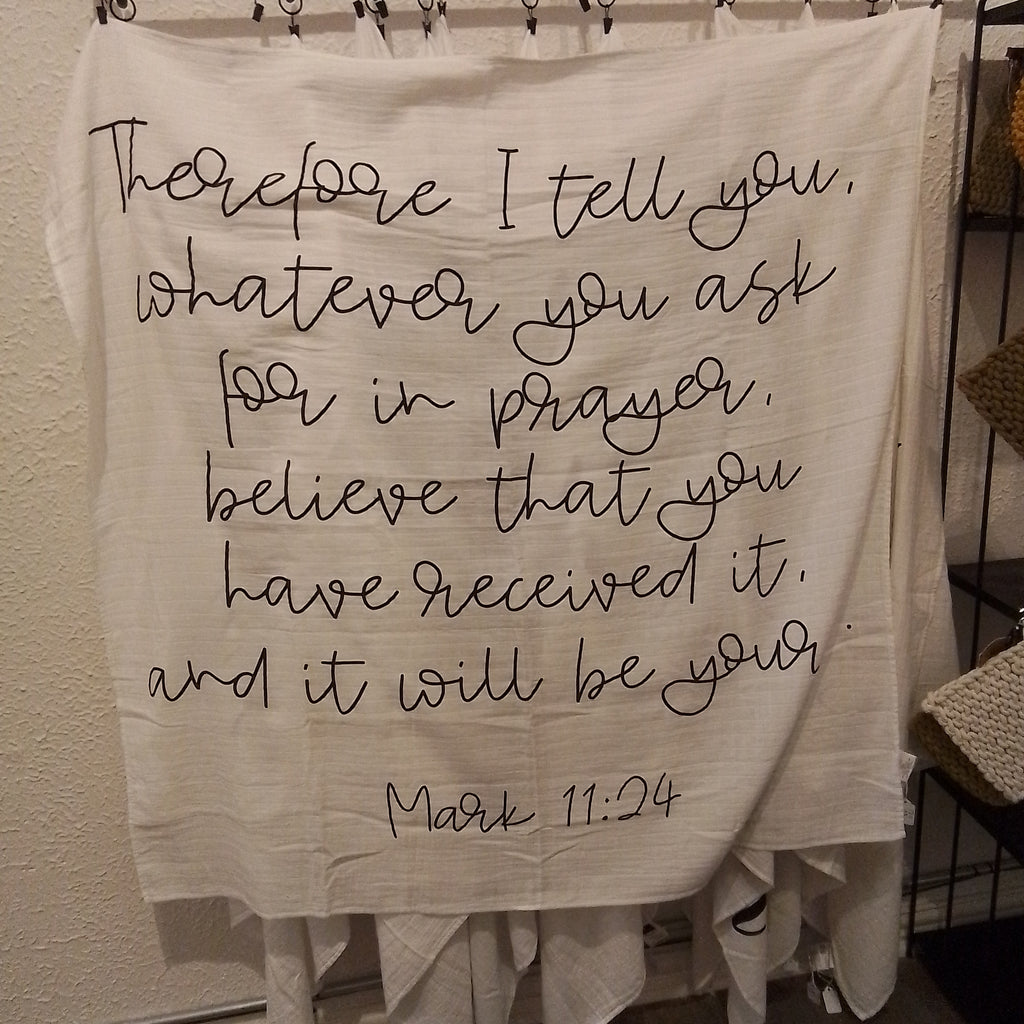 Therefore I tell you,
whatever you ask
for in prayer,
believe that you
have received it,
and it will be your.
Mark 11:24